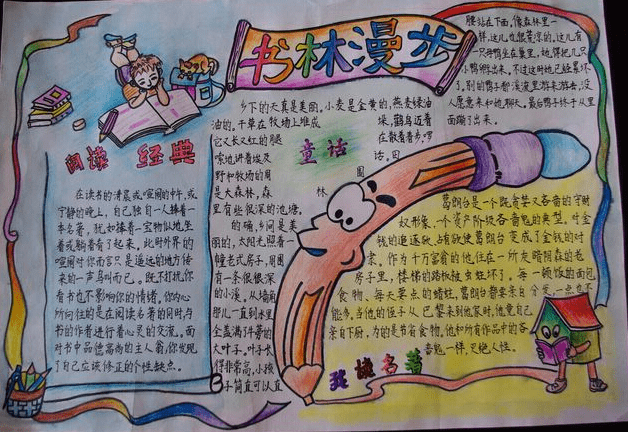 书林漫步
阅读 经典
在读书的清晨或喧闹的中午，或
宁静的晚上，自己独自一人捧着一
本名著，犹如捧着一宝物似地，坐
着或躺着看了起来，此时外界的
喧闹对你而言只是遥远的地方传
来的一声鸟叫而已。既不打扰你
看书也不影响你的情绪，你内心
所向往的是在阅读名著的同时与
书的作者进行着心灵的交流，面
对书中品德高尚的主人翁，你发现
了自己应该修正的个性缺点。
童话
乡下的天真是美丽，小麦是金黄的，燕麦绿油
油的。干草在牧场上堆成垛，鹳鸟迈着
它又长又红的腿在散着步，啰
嗦地讲着埃及话。田
野和牧场的周围
是大森林，森林
里有些很深的池塘。
的确，乡间是美
丽的，太阳光照着一
幢老式房子，周围
有一条很深
的小溪。从墙角
那儿一直到水里
全盖满了牛蒡的
大叶子。叶子长
得非常高，小孩
子简直可以直
腰站在下面，像森林里一
样，这儿也很荒凉的。这儿有
一只母鸭坐在巢里，她得把几只
小鸭孵出来。不过这时她已经累坏
了。别的鸭子都在溪流里游来游去，没
人愿意来和她聊天。最后鸭子终于从里
面蹦了出来。
葛朗台是一个既贪婪又吝啬的守财
奴形象，一个资产阶级吝啬鬼的典型。对金
钱的追逐欲、占有欲使葛朗台变成了金钱的对
象，作为千万富翁的他，住在一所灰暗阴森的老
房子里，楼梯的踏板被虫蛀坏了。每一顿饭的面包、
食物、每天要点的蜡烛，葛朗台都要亲自分发一点也不
能多，当他的侄子从巴黎来到他家时，他竟自己
亲自下厨，为的是节省食物，他和所有作品中的吝
啬鬼一样，灭绝人性。
我读名著